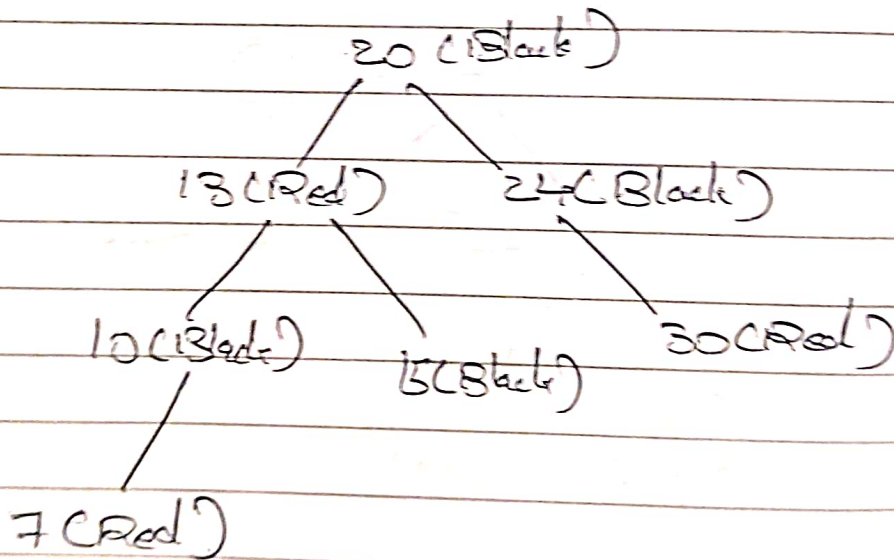 20 (Black)
13 (Red) 24 (Black)
10 (Black) 15 (Black) 30 (Red)
7 (Red)